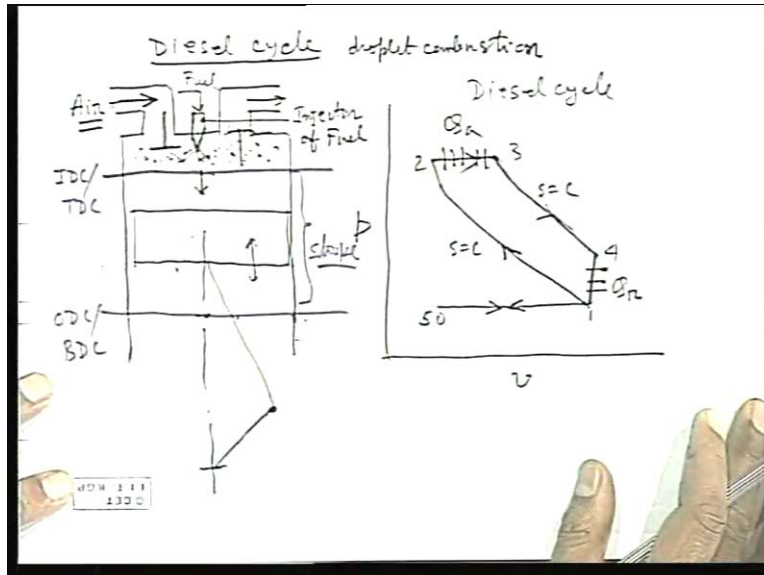 Diesel cycle droplet combustion
Fuel
Air
Injector
of Fuel
IDC/
TDC
Stroke
ODC/
BDC
Diesel cycle
Qa
2
3
s=c
s=c
4
Qr
50
1
p
v
© CET
I.I.T. KGP